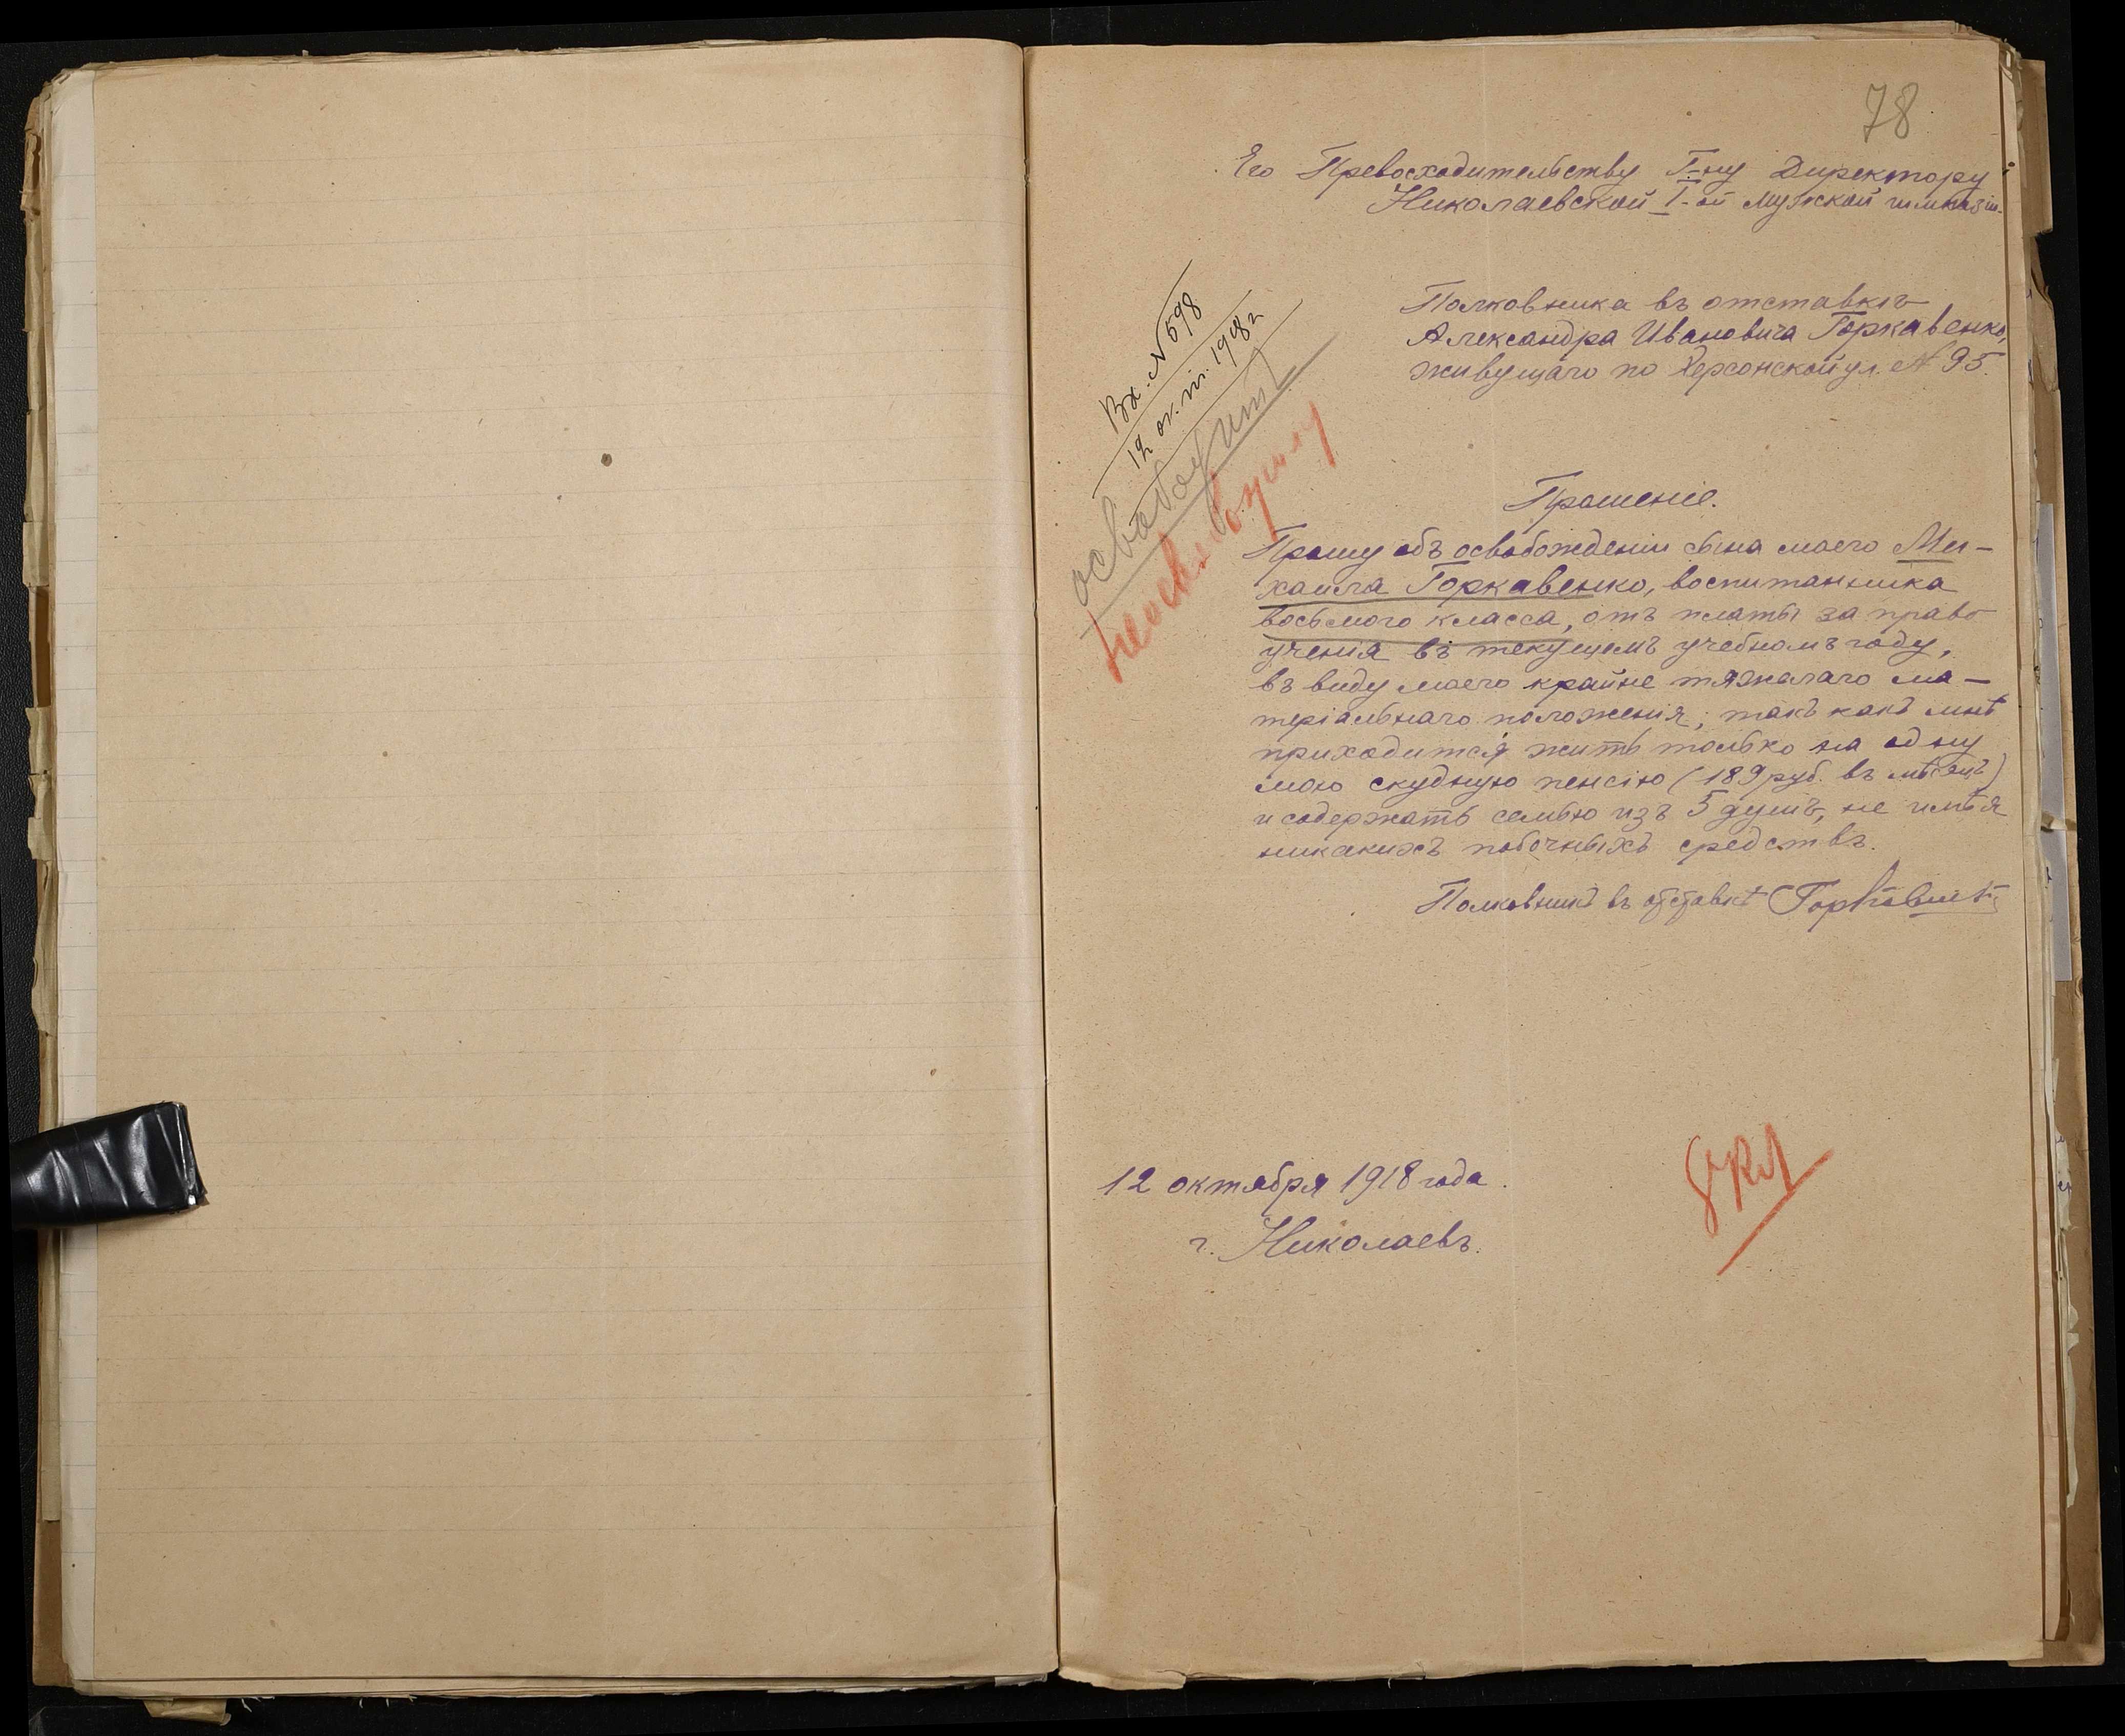 78
Его Превосходительству Г-ну Директору
Николаевской I-ой мужской гимназіи.
Вх. № 598
12 окт. 1918 г.
освободить
Полковника въ отставкѣ
Александра Ивановича Горкавенко,
живущаго по Херсонской ул. № 95.
Прошеніе.
Прошу объ освобожденіи сына моего Ми-
хаила Горкавенко, воспитанника
восьмого класса, отъ платы за право
ученія въ текущемъ учебномъ году,
въ виду моего крайне тяжелаго ма-
теріальнаго положенія, такъ какъ мнѣ
приходится жить только на одну
мою скудную пенсію (189 руб. въ мѣсяцъ)
и содержать семью изъ 5 душъ, не имѣя
никакихъ побочныхъ средствъ.
Полковникъ въ отставкѣ Горкавенко
12 октября 1918 года.
г. Николаевъ.
8 кл